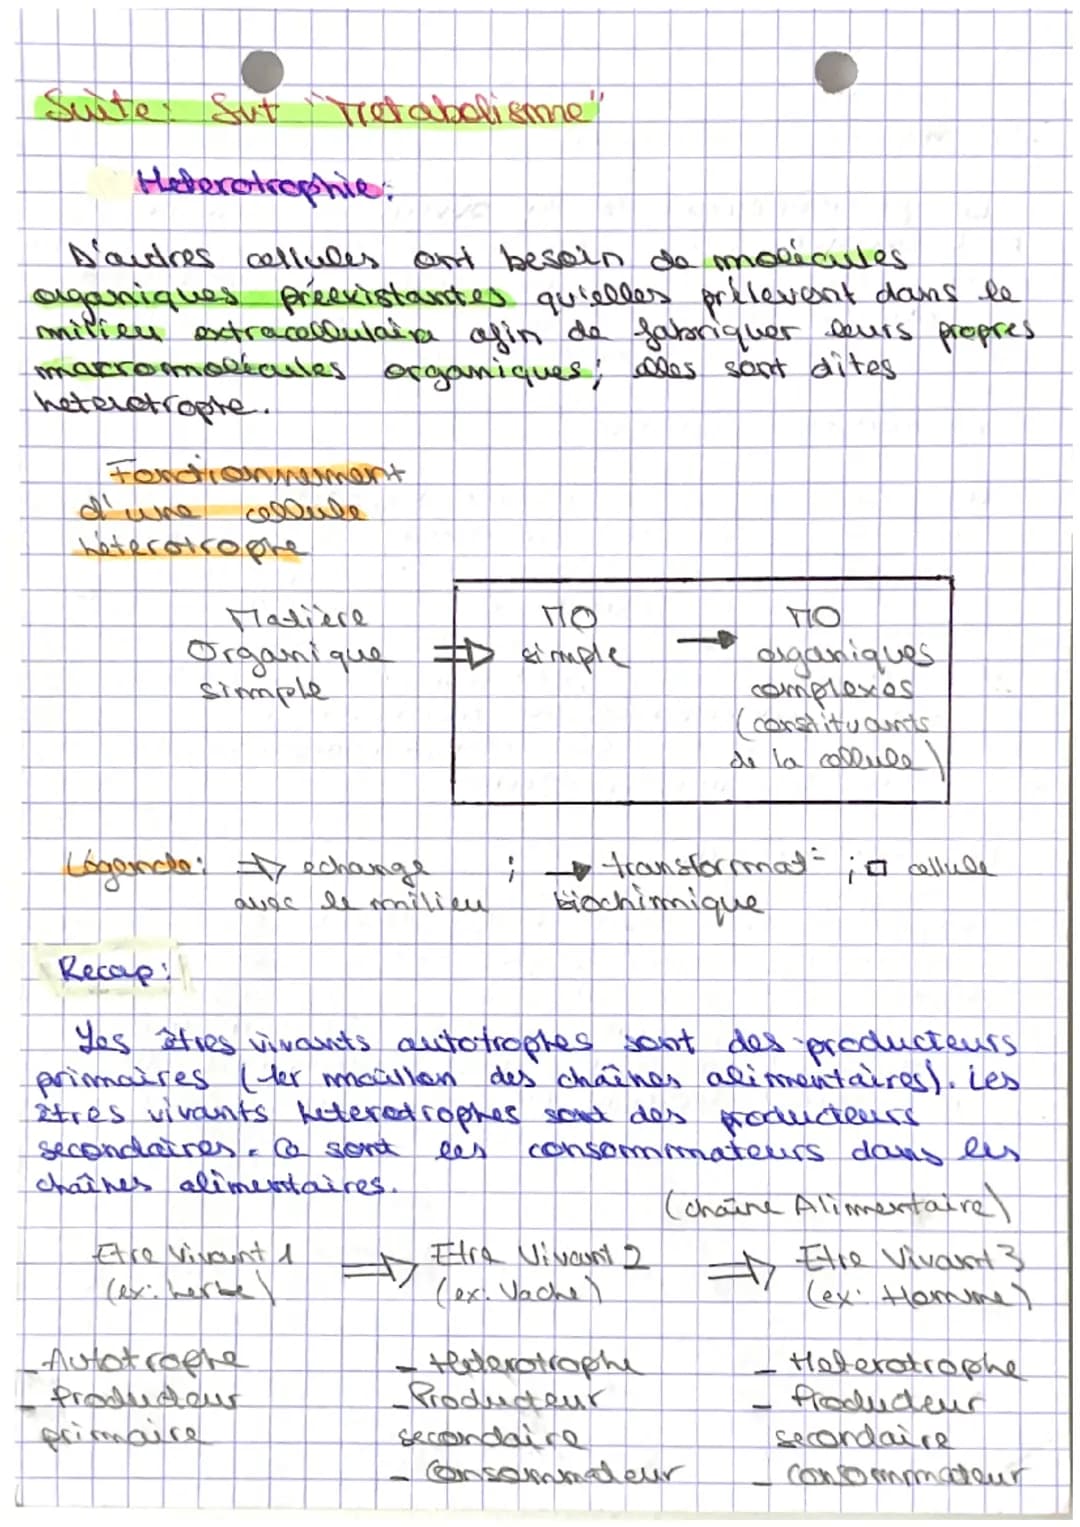 Suite: Svt "Metabolisme"
Heterotrophie:
D'autres cellules ont besoin de molécules
organiques préexistantes qu'elles prélevent dans le
milieu extracellulaire afin de fabriquer leurs propres
macromolécules organiques; elles sont dites
heterotrophe.
Fonctionnement
d'une cellule
héterotrophe
Matière
Organique
simple
⇒
MO
simple
→
MO
organiques
complexes
(constituants
de la cellule)
Légende: ⇒ echange ; → transformat° ; □ cellule
avec le milieu biochimique
Recap:
Les êtres vivants autotrophes sont des producteurs
primaires (1er maillon des chaînes alimentaires). Les
êtres vivants heterotrophes sont des producteurs
secondaires. Ce sont les consommateurs dans les
chaînes alimentaires.
(chaîne Alimentaire)
Etre Vivant 1 ⇒ Etre Vivant 2 ⇒ Etre Vivant 3
(ex: herbe) (ex: Vache) (ex: Homme)
- Autotrophe - Heterotrophe - Heterotrophe
- Producteur - Producteur - Producteur
primaire secondaire secondaire
- Consommateur - Consommateur